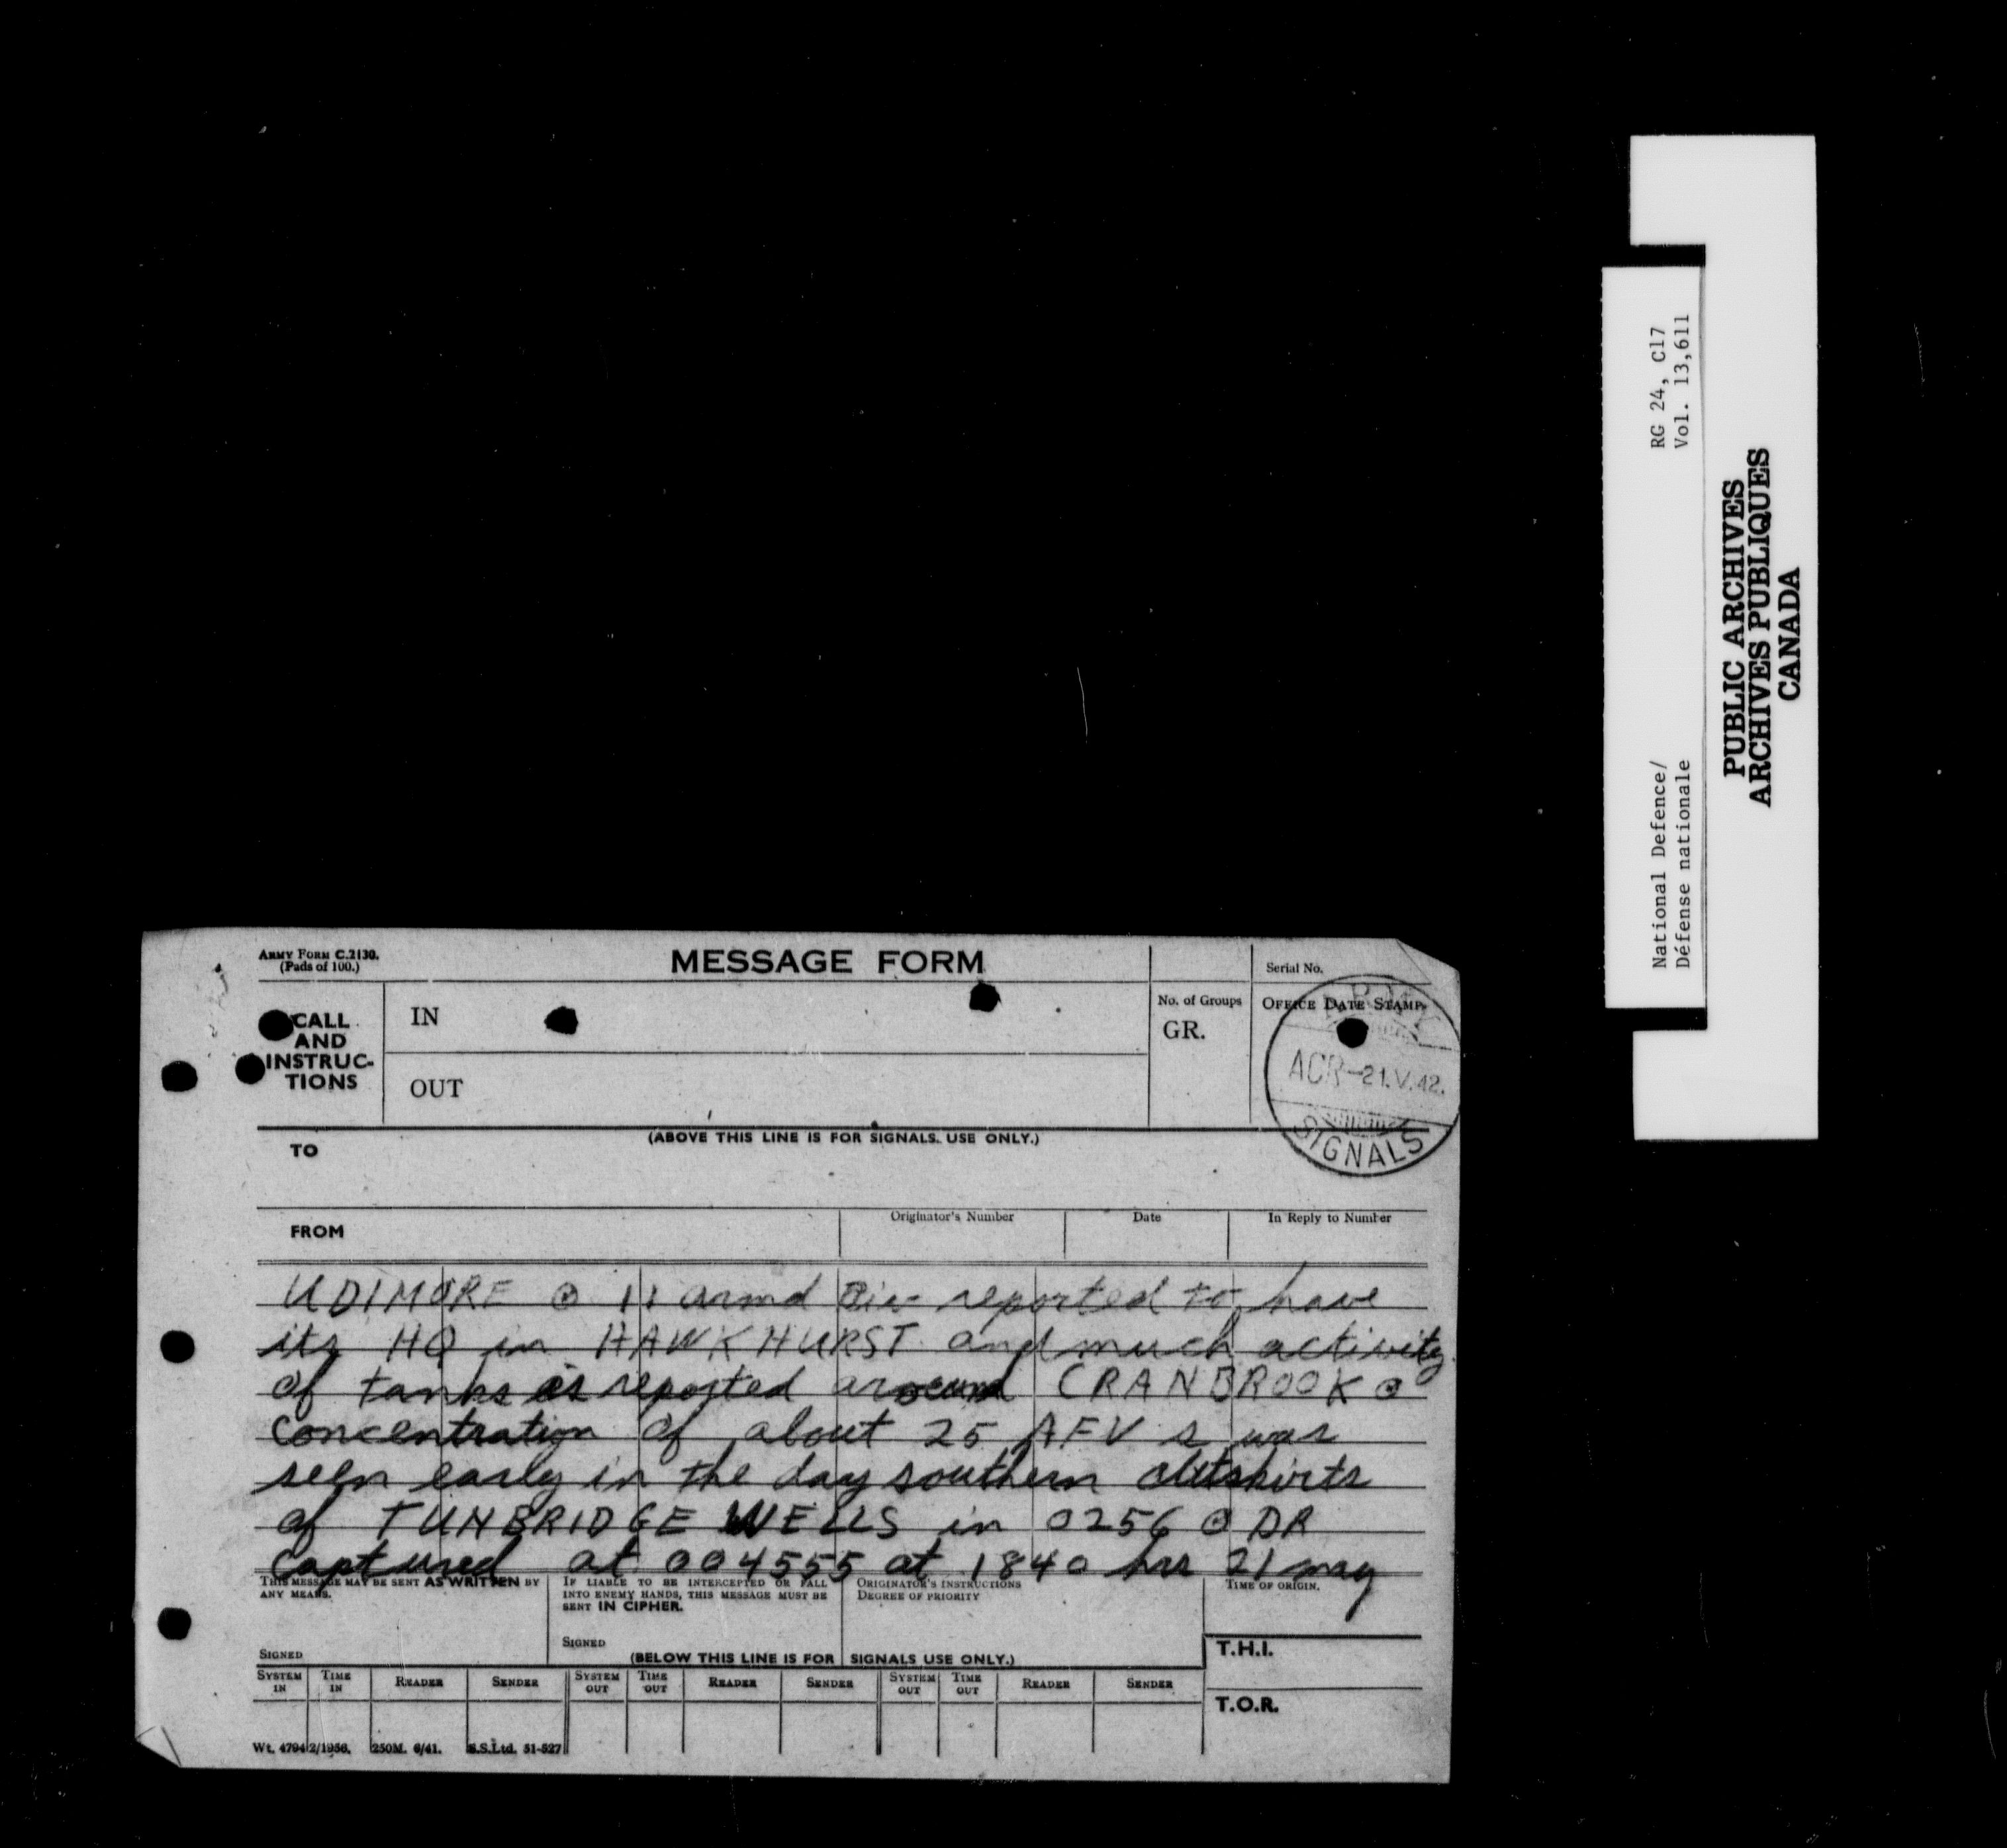 ARMY FORM C.2130.
(Pads of 100.)
MESSAGE FORM
Serial No.
CALL
AND
INSTRUC-
TIONS
IN
OUT
No. of Groups
GR.
OFFICE DATE STAMP
ARMY
ACR-21.V.42.
SIGNALS
(ABOVE THIS LINE IS FOR SIGNALS USE ONLY.)
TO
FROM
Originator's Number
Date
In Reply to Number
UDIMORE @ 11 armd Div reported to have
its HQ in HAWKHURST and much activity
of tanks is reported around CRANBROOK @
concentration of about 25 AFV s was
seen early in the day southern outskirts
of TUNBRIDGE WELLS in 0256 @ DR
captured at 004555 at 1840 hrs 21 may
THIS MESSAGE MAY BE SENT AS WRITTEN BY
ANY MEANS.
SIGNED
IF LIABLE TO BE INTERCEPTED OR FALL
INTO ENEMY HANDS, THIS MESSAGE MUST BE
SENT IN CIPHER.
SIGNED
ORIGINATOR'S INSTRUCTIONS
DEGREE OF PRIORITY
TIME OF ORIGIN.
(BELOW THIS LINE IS FOR SIGNALS USE ONLY.)
T.H.I.
T.O.R.
SYSTEM IN
TIME IN
READER
SENDER
SYSTEM OUT
TIME OUT
READER
SENDER
SYSTEM OUT
TIME OUT
READER
SENDER
Wt. 47942/1956. 250M. 6/41. S.S.Ltd. 51-527
National Defence/ RG 24, C17
Défense nationale Vol. 13,611
PUBLIC ARCHIVES
ARCHIVES PUBLIQUES
CANADA